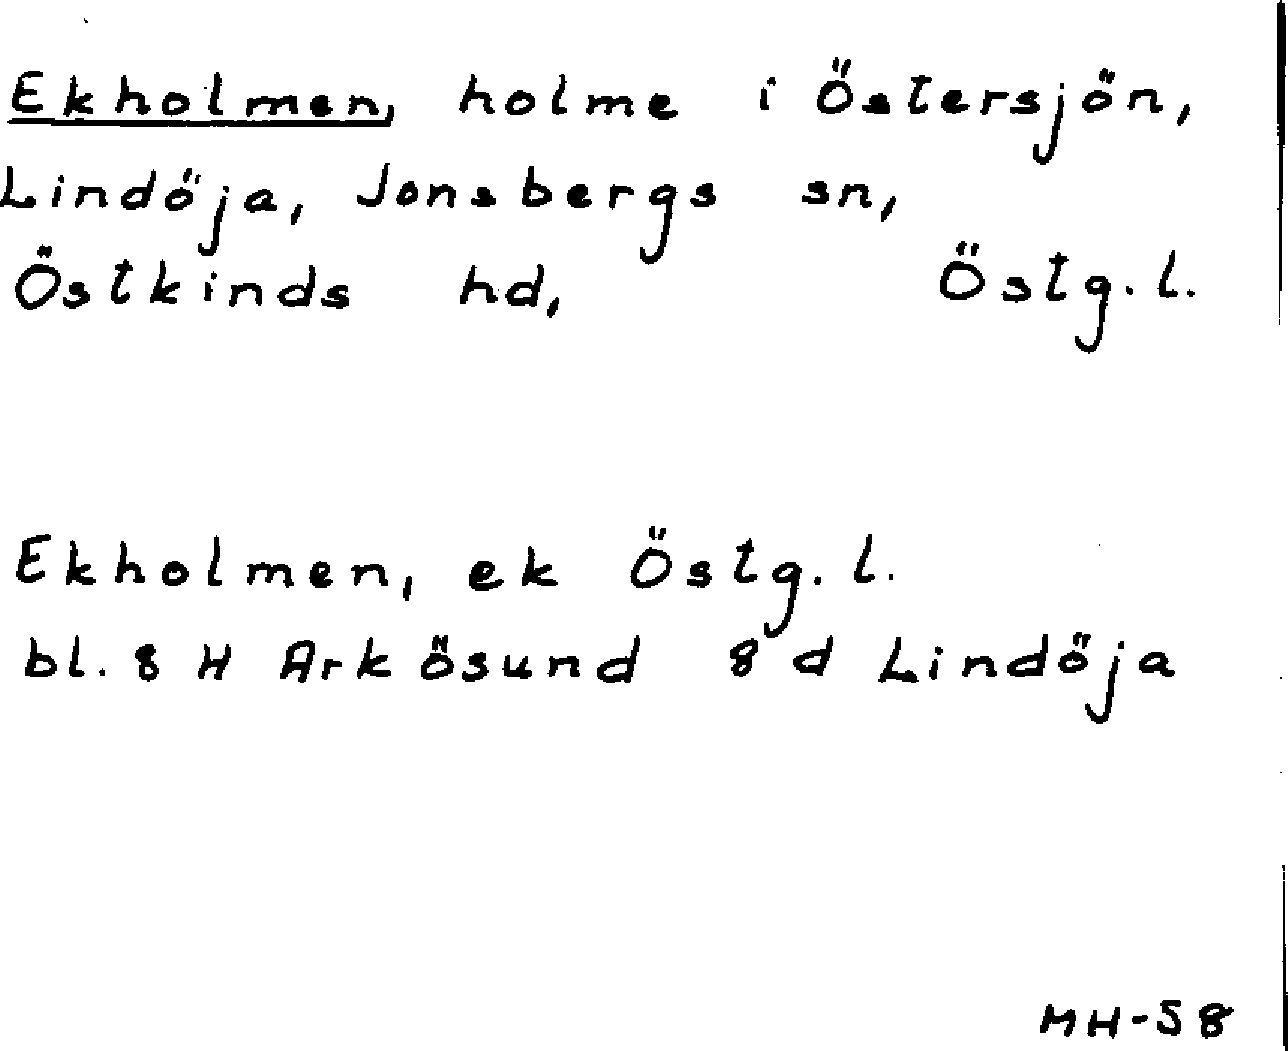 Ekholmen, holme i Östersjön,
Lindöja, Jonsbergs sn,
Östkinds hd, Östg. l.
Ekholmen, ek Östg. l.
bl. 8 H Arkösund 8 d Lindöja
MH-58